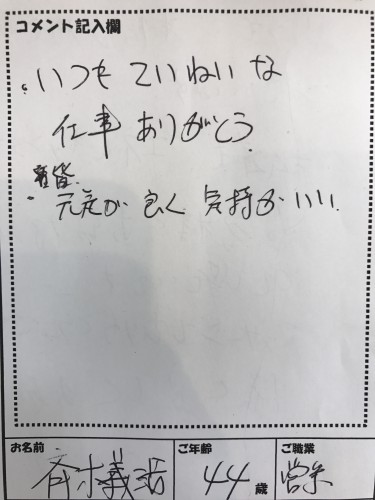 コメント記入欄
・いつも ていねいな
仕事 ありがとう.
皆
・元気が 良く 気持がいい.
お名前
ご年齢
ご職業
44歳